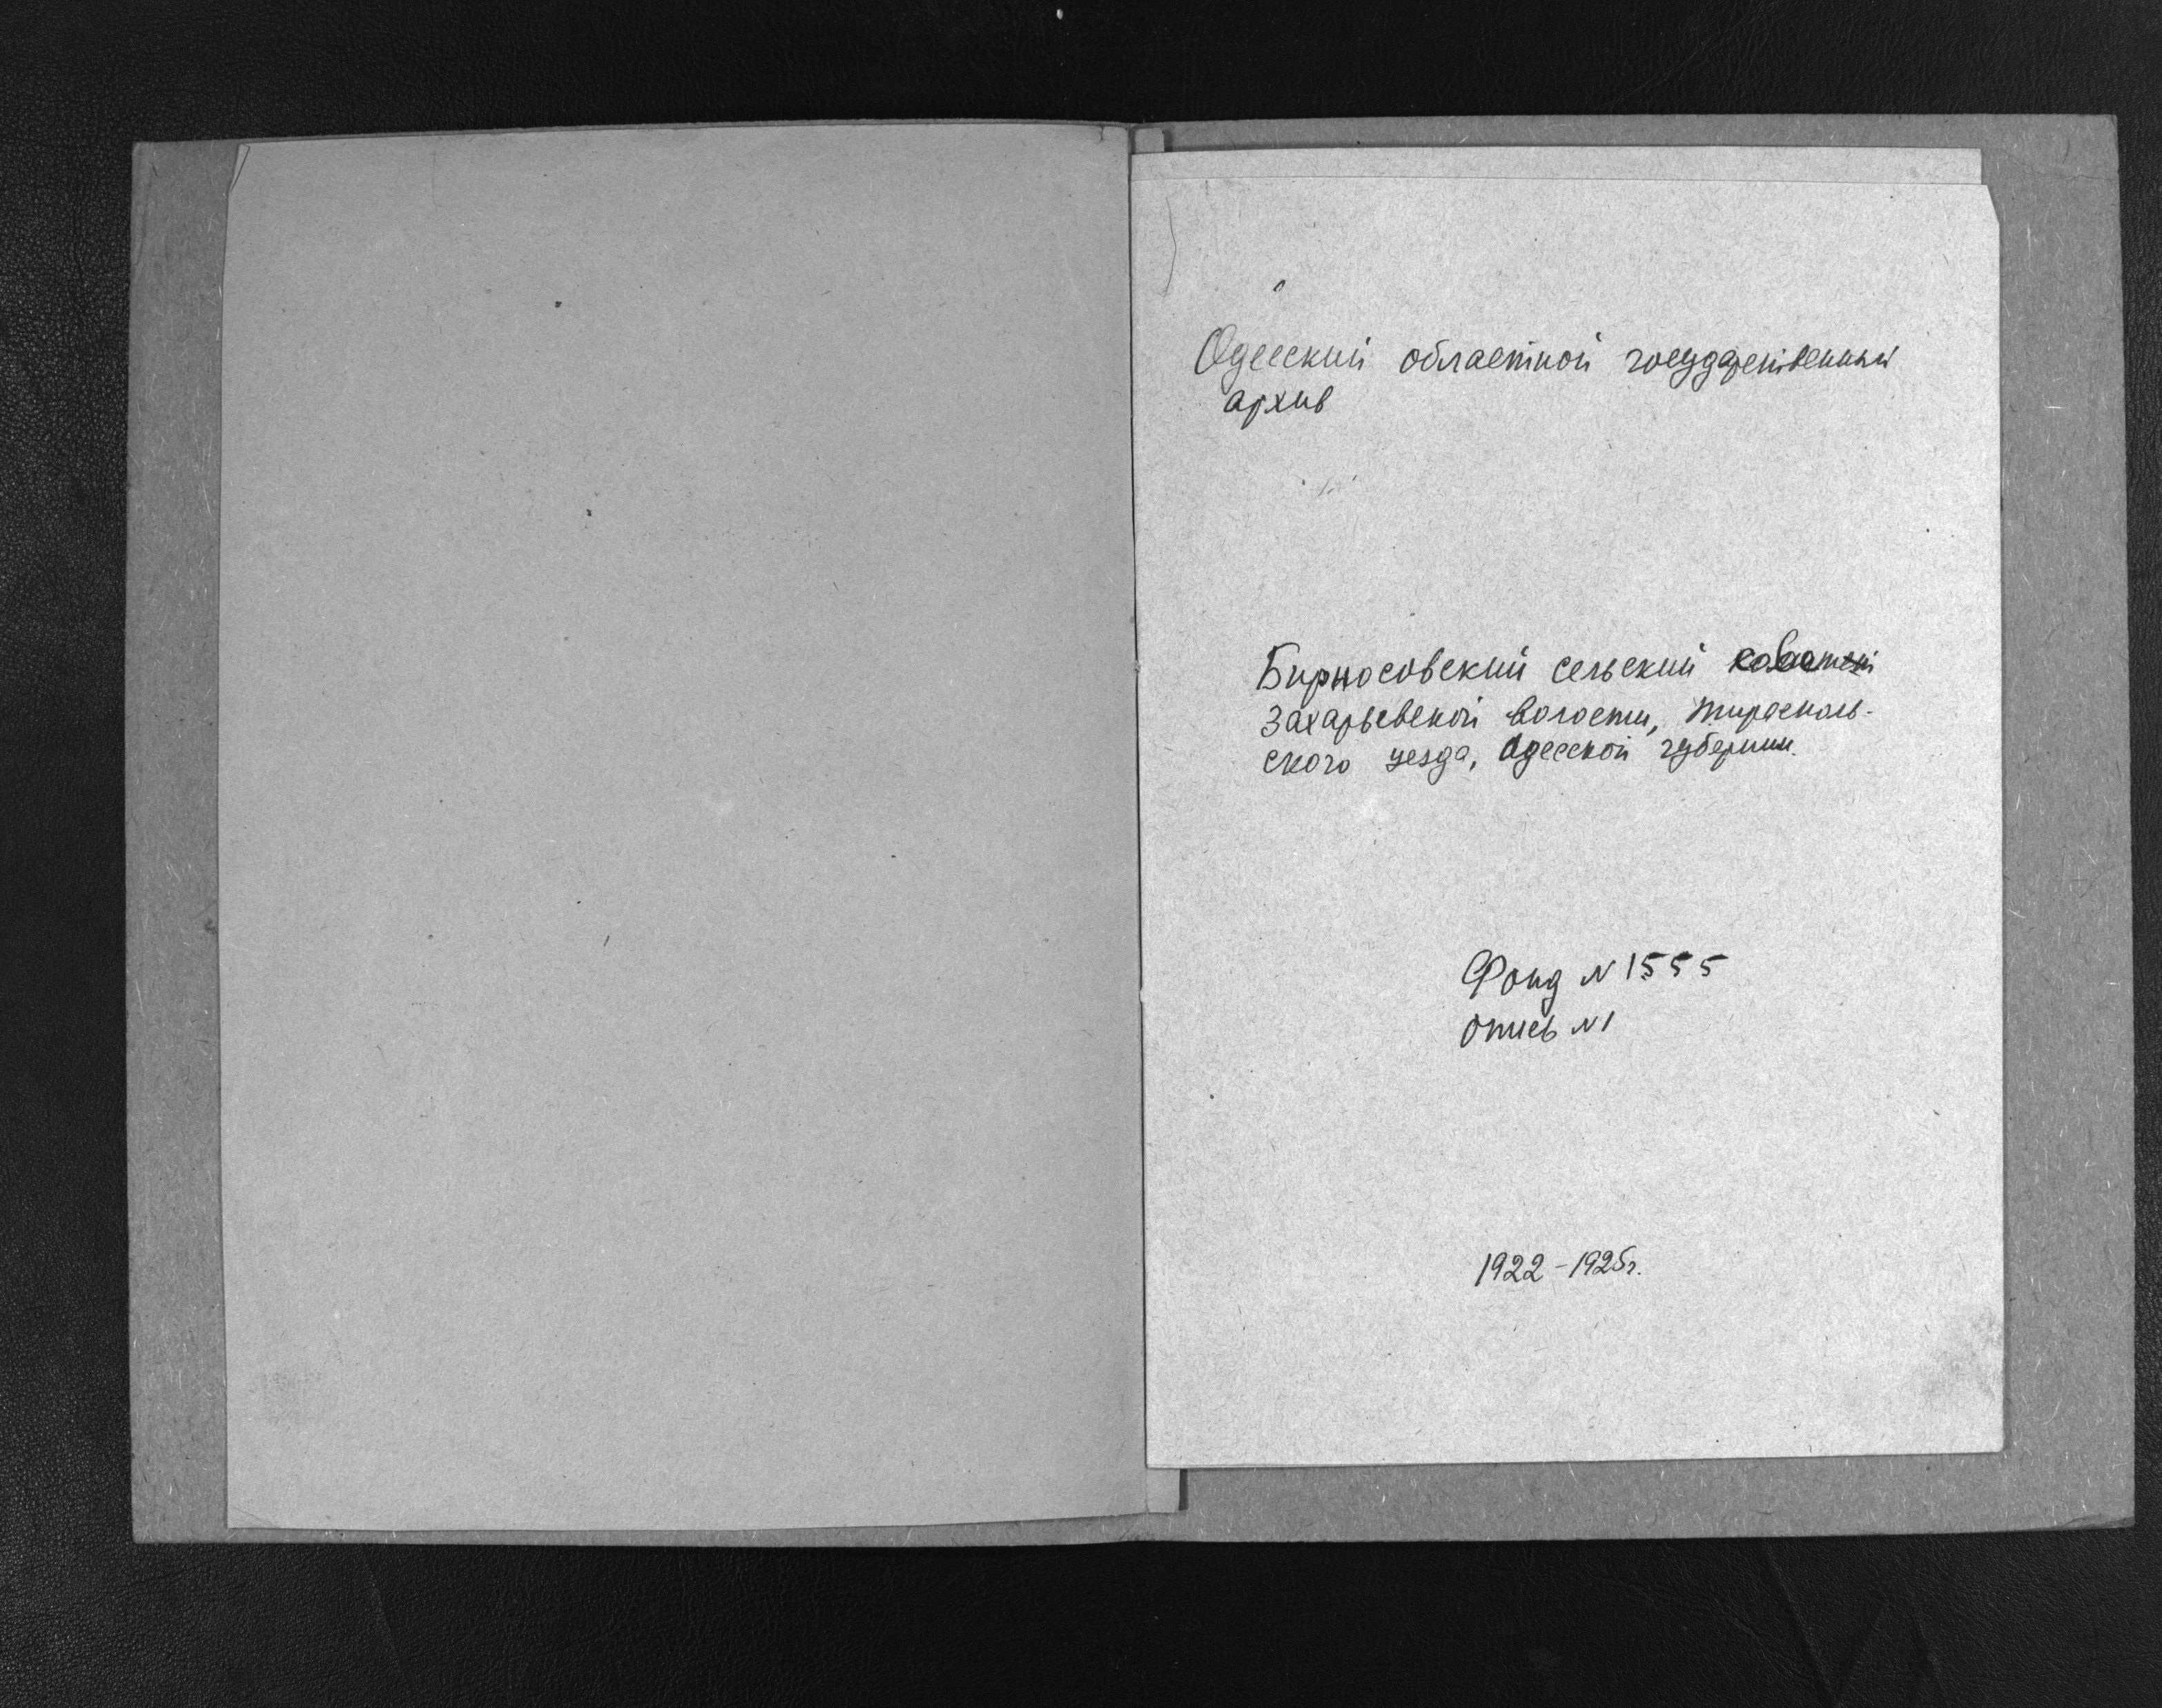 Одесский областной государственный
архив
Бирносовский сельский совет
Захарьевской волости, Тирасполь-
ского уезда, Одесской губернии.
Фонд N 1555
Опись N 1
1922 - 1925г.